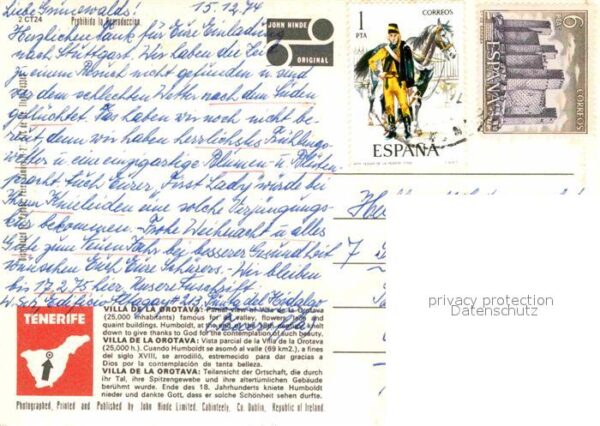 Liebe Grünewalds! 15.12.74
2 CT24 Prohibida la Reproducción
Herzlichen Dank für Eure Einladung
nach Stuttgart. Wir haben die Zeit
zu einem Besuch nicht gefunden u. sind
vor dem schlechten Wetter nach dem Süden
geflüchtet. Das haben wir noch nicht be-
reut, denn wir haben herrlichstes Frühlings-
wetter u. eine einzigartige Blumen- u. Blüten-
pracht. Auch Eurer First Lady würde bei
Ihrem Knieleiden eine solche Verjüngungs-
bekommen. Frohe Weihnacht u. alles
Gute zum Neuen Jahr bei besserer Gesundheit
wünschen Euch Eure Schurers. Wir bleiben
bis 17.2.75 hier. Unsere Anschrift
Edificio 213, Punta del Hidalgo
JOHN HINDE
ORIGINAL
1
PTA
CORREOS
ESPAÑA
6
PTAS
ESPAÑA
CORREOS
7
privacy protection
Datenschutz
TENERIFE
VILLA DE LA OROTAVA: Partial view of Villa de la Orotava
(25,000 inhabitants) famous for its valley, flowers, and
quaint buildings. Humboldt, at the end of the 18th century, knelt
down to give thanks to God for the contemplation of such beauty.
VILLA DE LA OROTAVA: Vista parcial de la Villa de la Orotava
(25,000 h.). Cuando Humboldt se asomó al valle (69 km2.), a fines
del siglo XVIII, se arrodilló, estremecido para dar gracias a
Dios por la contemplación de tanta belleza.
VILLA DE LA OROTAVA: Teilansicht der Ortschaft, die durch
ihr Tal, ihre Spitzengewebe und ihre altertümlichen Gebäude
berühmt wurde. Ende des 18. Jahrhunderts kniete Humboldt
nieder und dankte Gott, dass er solche Schönheit sehen durfte.
Photographed, Printed and Published by John Hinde Limited, Cabinteely, Co. Dublin, Republic of Ireland.